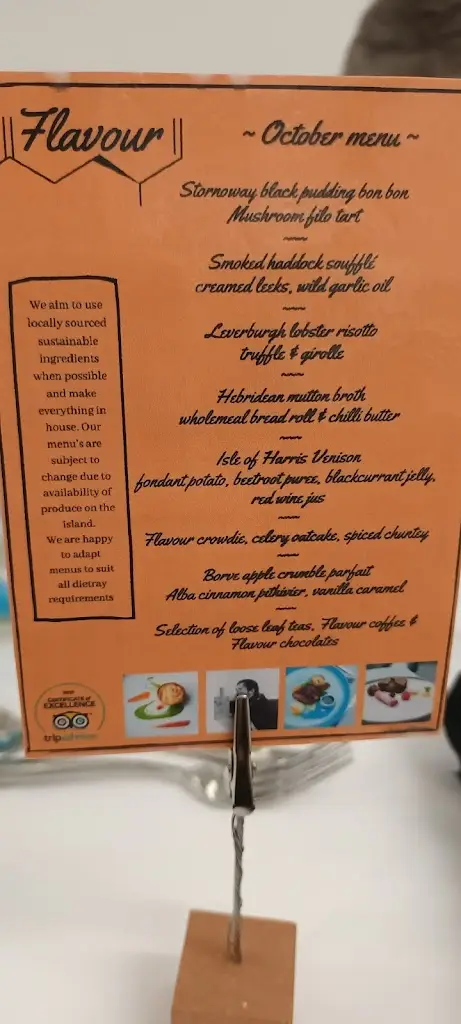 Flavour
~ October menu ~
Stornoway black pudding bon bon
Mushroom filo tart
~~~
Smoked haddock soufflé
creamed leeks, wild garlic oil
~~~
Leverburgh lobster risotto
truffle & girolle
~~~
Hebridean mutton broth
wholemeal bread roll & chilli butter
~~~
Isle of Harris Venison
fondant potato, beetroot puree, blackcurrant jelly,
red wine jus
~~~
Flavour crowdie, celery oatcake, spiced chuntey
~~~
Borve apple crumble parfait
Alba cinnamon pithivier, vanilla caramel
~~~
Selection of loose leaf teas, Flavour coffee &
Flavour chocolates
We aim to use
locally sourced
sustainable
ingredients
when possible
and make
everything in
house. Our
menu's are
subject to
change due to
availability of
produce on the
island.
We are happy
to adapt
menus to suit
all dietray
requirements
CERTIFICATE of
EXCELLENCE
tripadvisor